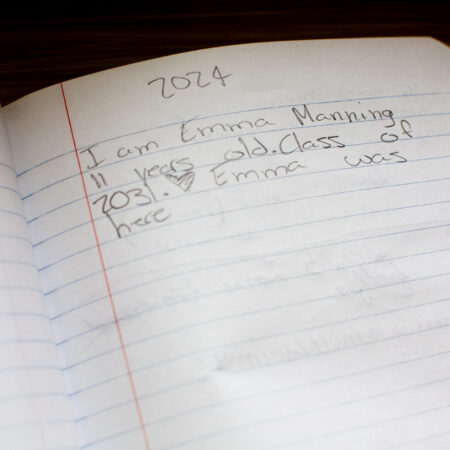 2024
I am Emma Manning
11 years old. Class of
2031. ♥ Emma was
here